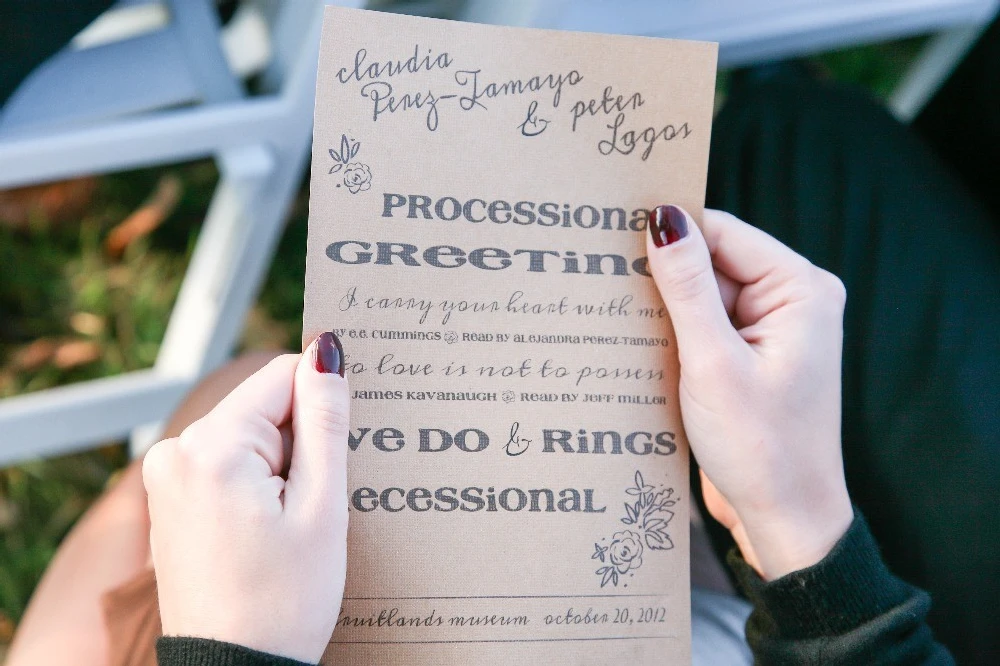 claudia
Perez-Tamayo
& peter
Lagos
PROCESSIONA
GREETING
I carry your heart with me
BY e.e. cummings READ BY ALEJANDRA PEREZ-TAMAYO
To love is not to possess
JAMES KAVANAUGH READ BY JEFF MILLER
VE DO & RINGS
ECESSIONAL
fruitlands museum october 20, 2012